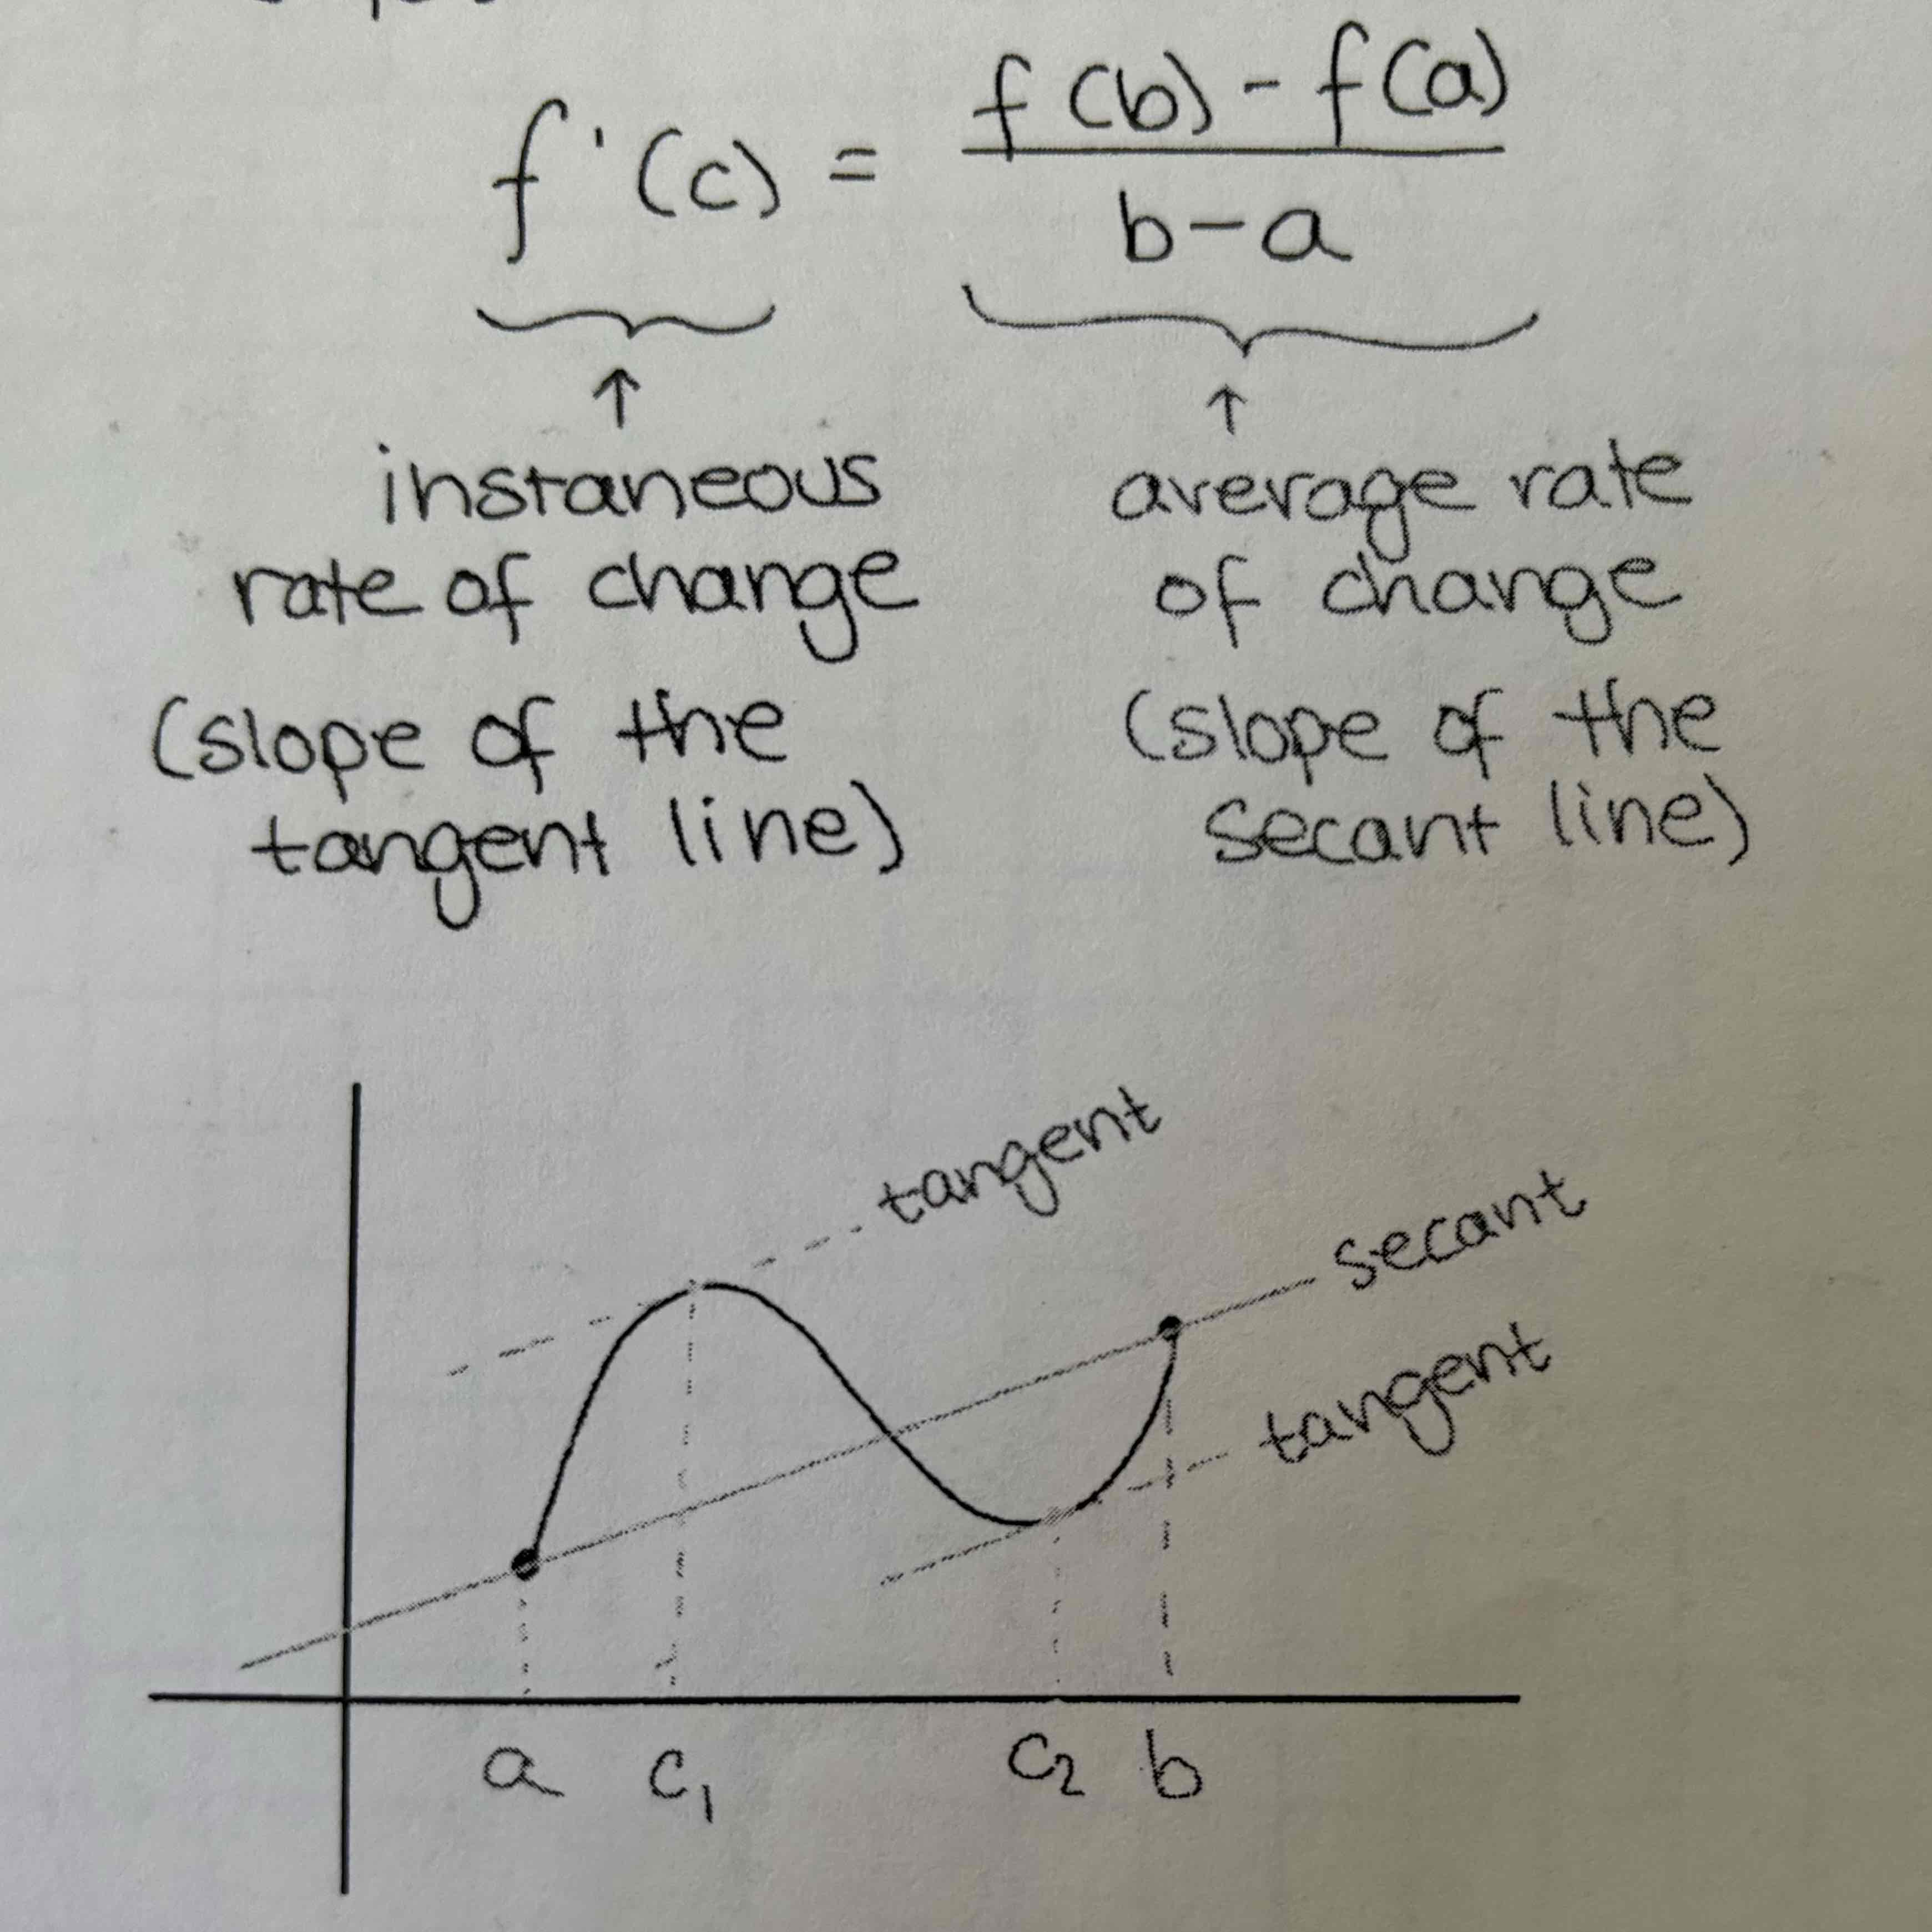 f'(c) = f(b) - f(a)
b-a
↑ ↑
instaneous
rate of change
(slope of the
tangent line)
average rate
of change
(slope of the
secant line)
tangent
secant
tangent
a c₁ c₂ b